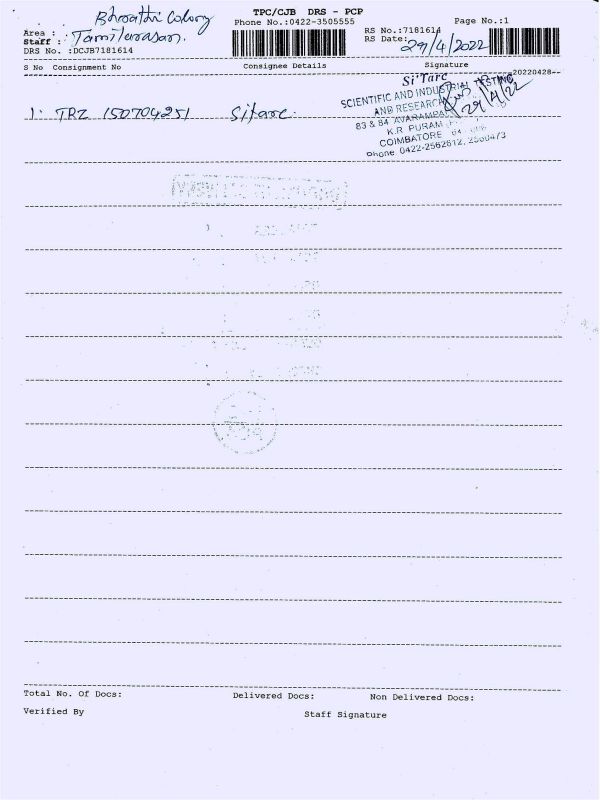 TPC/CJB DRS - PCP
Phone No.:0422-3505555
Page No.:1
Area : Bharathi Colony
Staff : Tamilarasan.
DRS No. :DCJB7181614
RS No.:7181614
RS Date: 29/4/2022
S No Consignment No Consignee Details Signature
20220428--
1. TRZ 150704251 Sitarc
Si'Tarc
SCIENTIFIC AND INDUSTRIAL TESTING
AND RESEARCH
29/4/22
83 & 84 AVARAMPA
K.R PURAM
COIMBATORE 64
Phone 0422-2562612, 2560473
Total No. Of Docs: Delivered Docs: Non Delivered Docs:
Verified By Staff Signature